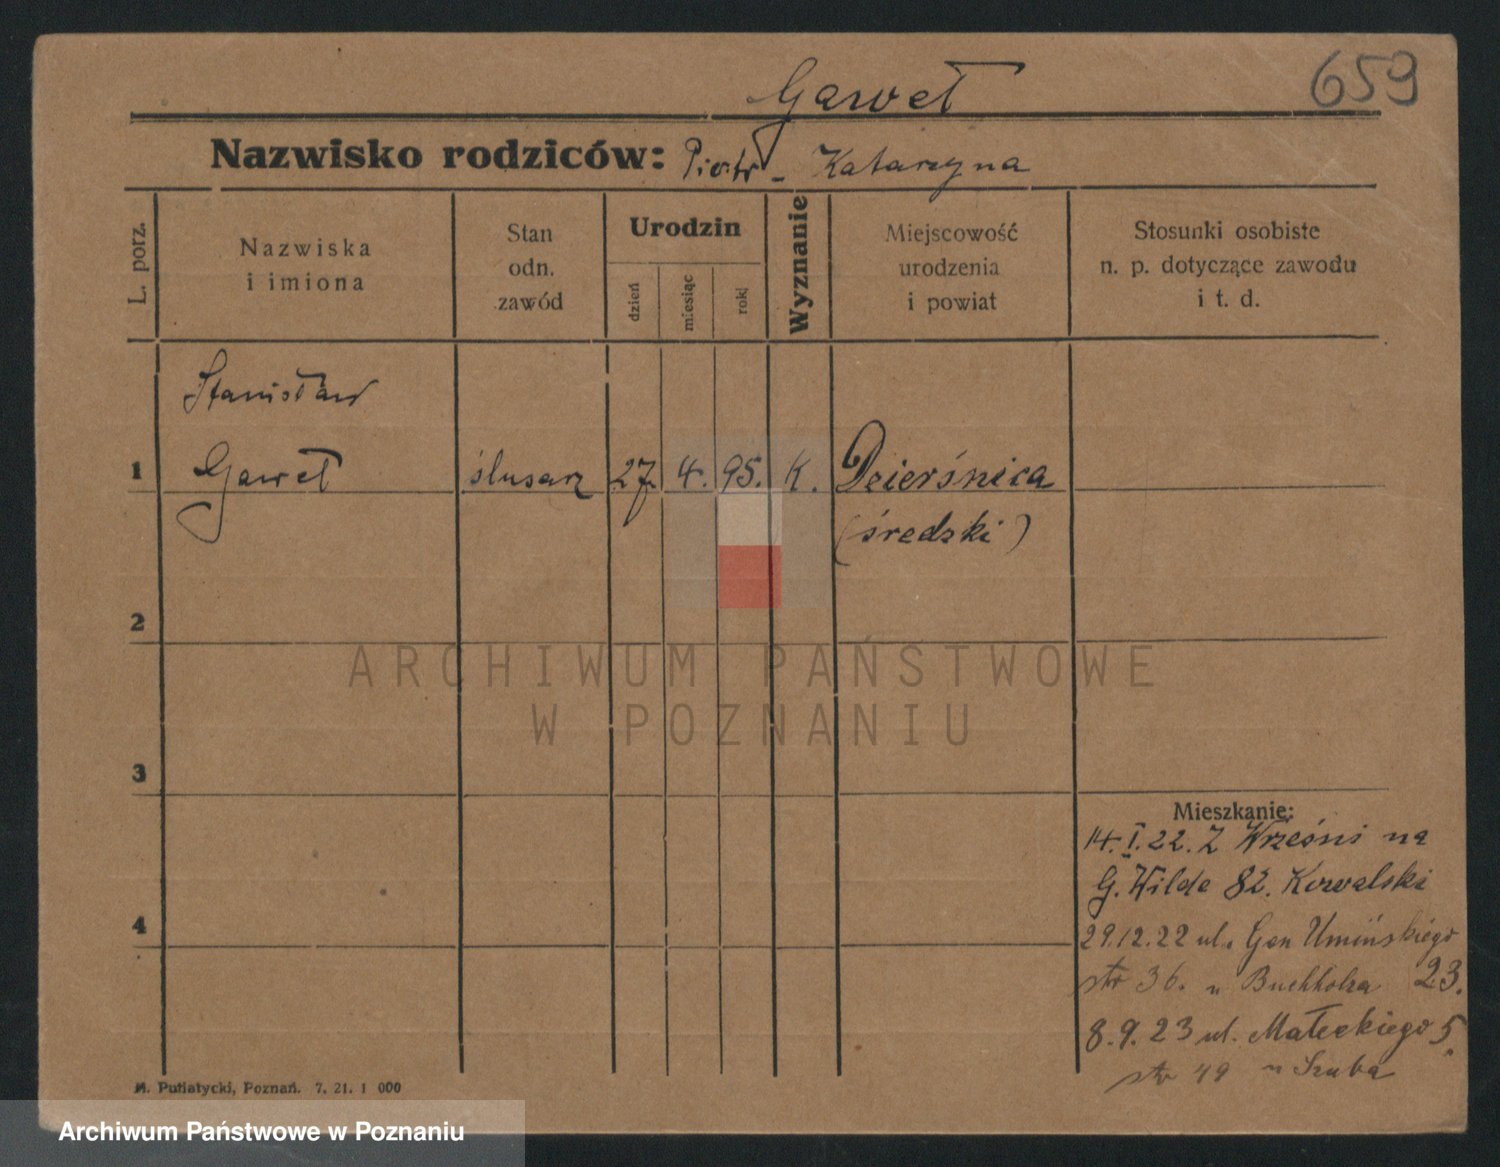 659
Gaweł
Nazwisko rodziców: Piotr - Katarzyna
L. porz.
Nazwiska
i imiona
Stan
odn.
zawód
Urodzin
dzień
miesiąc
rok
Wyznanie
Miejscowość
urodzenia
i powiat
Stosunki osobiste
n. p. dotyczące zawodu
i t. d.
Stanisław
1 Gaweł ślusarz 27. 4. 95. K. Dzierśnica
(średzki)
2
ARCHIWUM PAŃSTWOWE
W POZNANIU
3
Mieszkanie:
14.I.22. Z Wrześni na
G. Wilda 82. Kowalski
4
29.12.22 ul. Gen Umińskiego
str 36. u Buchholza 23.
8.9.23 ul. Małeckiego 5.
str 49 u Szuba
M. Putiatycki, Poznań. 7. 21. 1 000
Archiwum Państwowe w Poznaniu